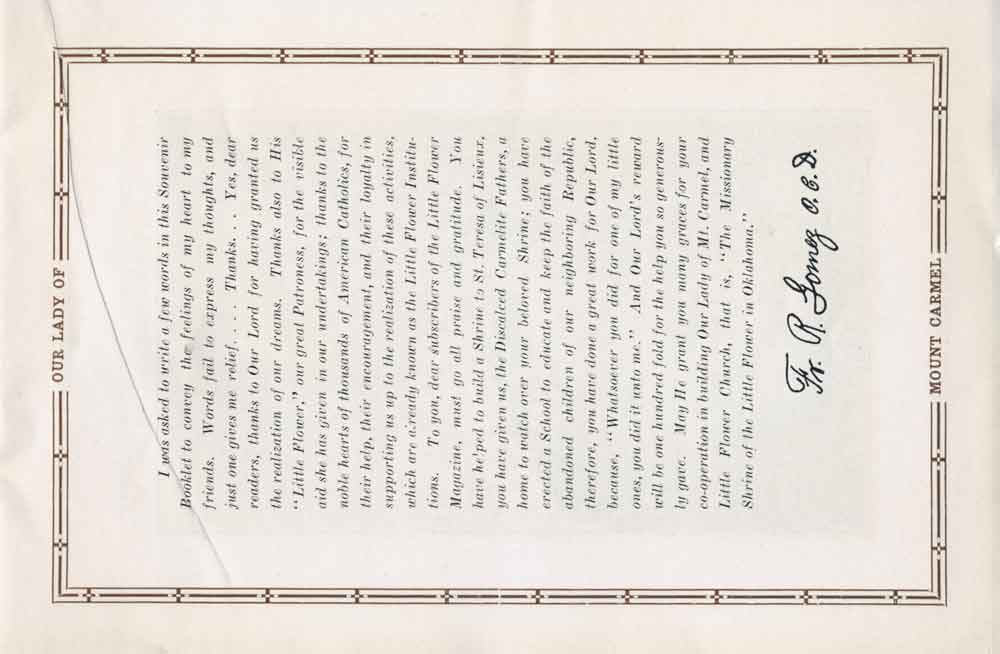 OUR LADY OF
I was asked to write a few words in this Souvenir
Booklet to convey the feelings of my heart to my
friends. Words fail to express my thoughts, and
just one gives me relief. . . . Thanks. . . Yes, dear
readers, thanks to Our Lord for having granted us
the realization of our dreams. Thanks also to His
"Little Flower," our great Patroness, for the visible
aid she has given in our undertakings; thanks to the
noble hearts of thousands of American Catholics, for
their help, their encouragement, and their loyalty in
supporting us up to the realization of these activities,
which are already known as the Little Flower Institu-
tions. To you, dear subscribers of the Little Flower
Magazine, must go all praise and gratitude. You
have helped to build a Shrine to St. Teresa of Lisieux,
you have given us, the Discalced Carmelite Fathers, a
home to watch over your beloved Shrine; you have
erected a School to educate and keep the faith of the
abandoned children of our neighboring Republic,
therefore, you have done a great work for Our Lord,
because, "Whatsoever you did for one of my little
ones, you did it unto me." And Our Lord's reward
will be one hundred fold for the help you so generous-
ly gave. May He grant you many graces for your
co-operation in building Our Lady of Mt. Carmel, and
Little Flower Church, that is, "The Missionary
Shrine of the Little Flower in Oklahoma."
Fr. R. Gomez O.C.D.
MOUNT CARMEL